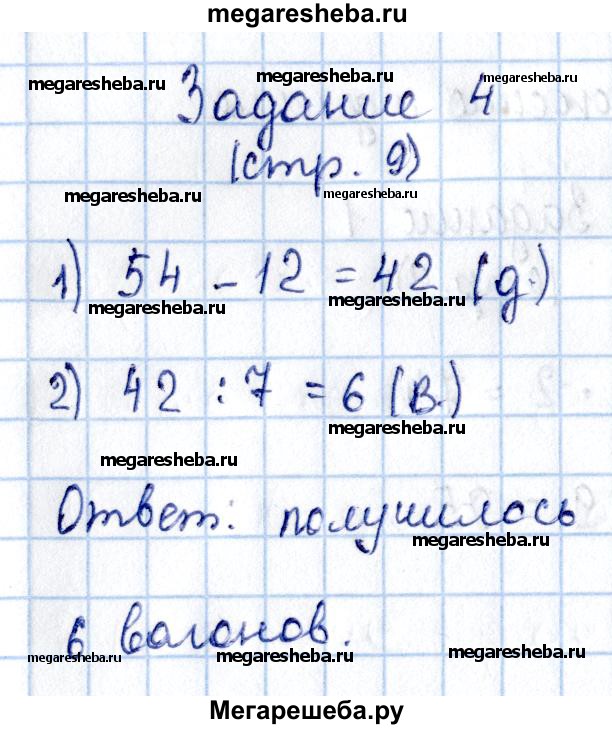 megaresheba.ru
megaresheba.ru megaresheba.ru megaresheba.ru
Задание 4
(стр. 9)
megaresheba.ru megaresheba.ru
1) 54 - 12 = 42 (д.)
megaresheba.ru megaresheba.ru
2) 42 : 7 = 6 (в.)
megaresheba.ru
megaresheba.ru
Ответ: получилось
megaresheba.ru
6 вагонов.
megaresheba.ru megaresheba.ru megaresheba.ru
Мегарешеба.ру